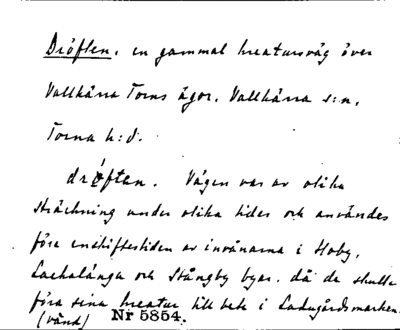 Dröften, en gammal kreatursväg över
Vallkärra Torns ägor. Vallkärra s:n.
Torna h:d.
dröften. Vägen var av olika
sträckning under olika tider och användes
före enskiftestiden av invånarna i Håby,
Lackalänga och Stångby byar, då de skulle
föra sina kreatur till bete i Ladugårdsmarken.
(vänd) Nr 5854.